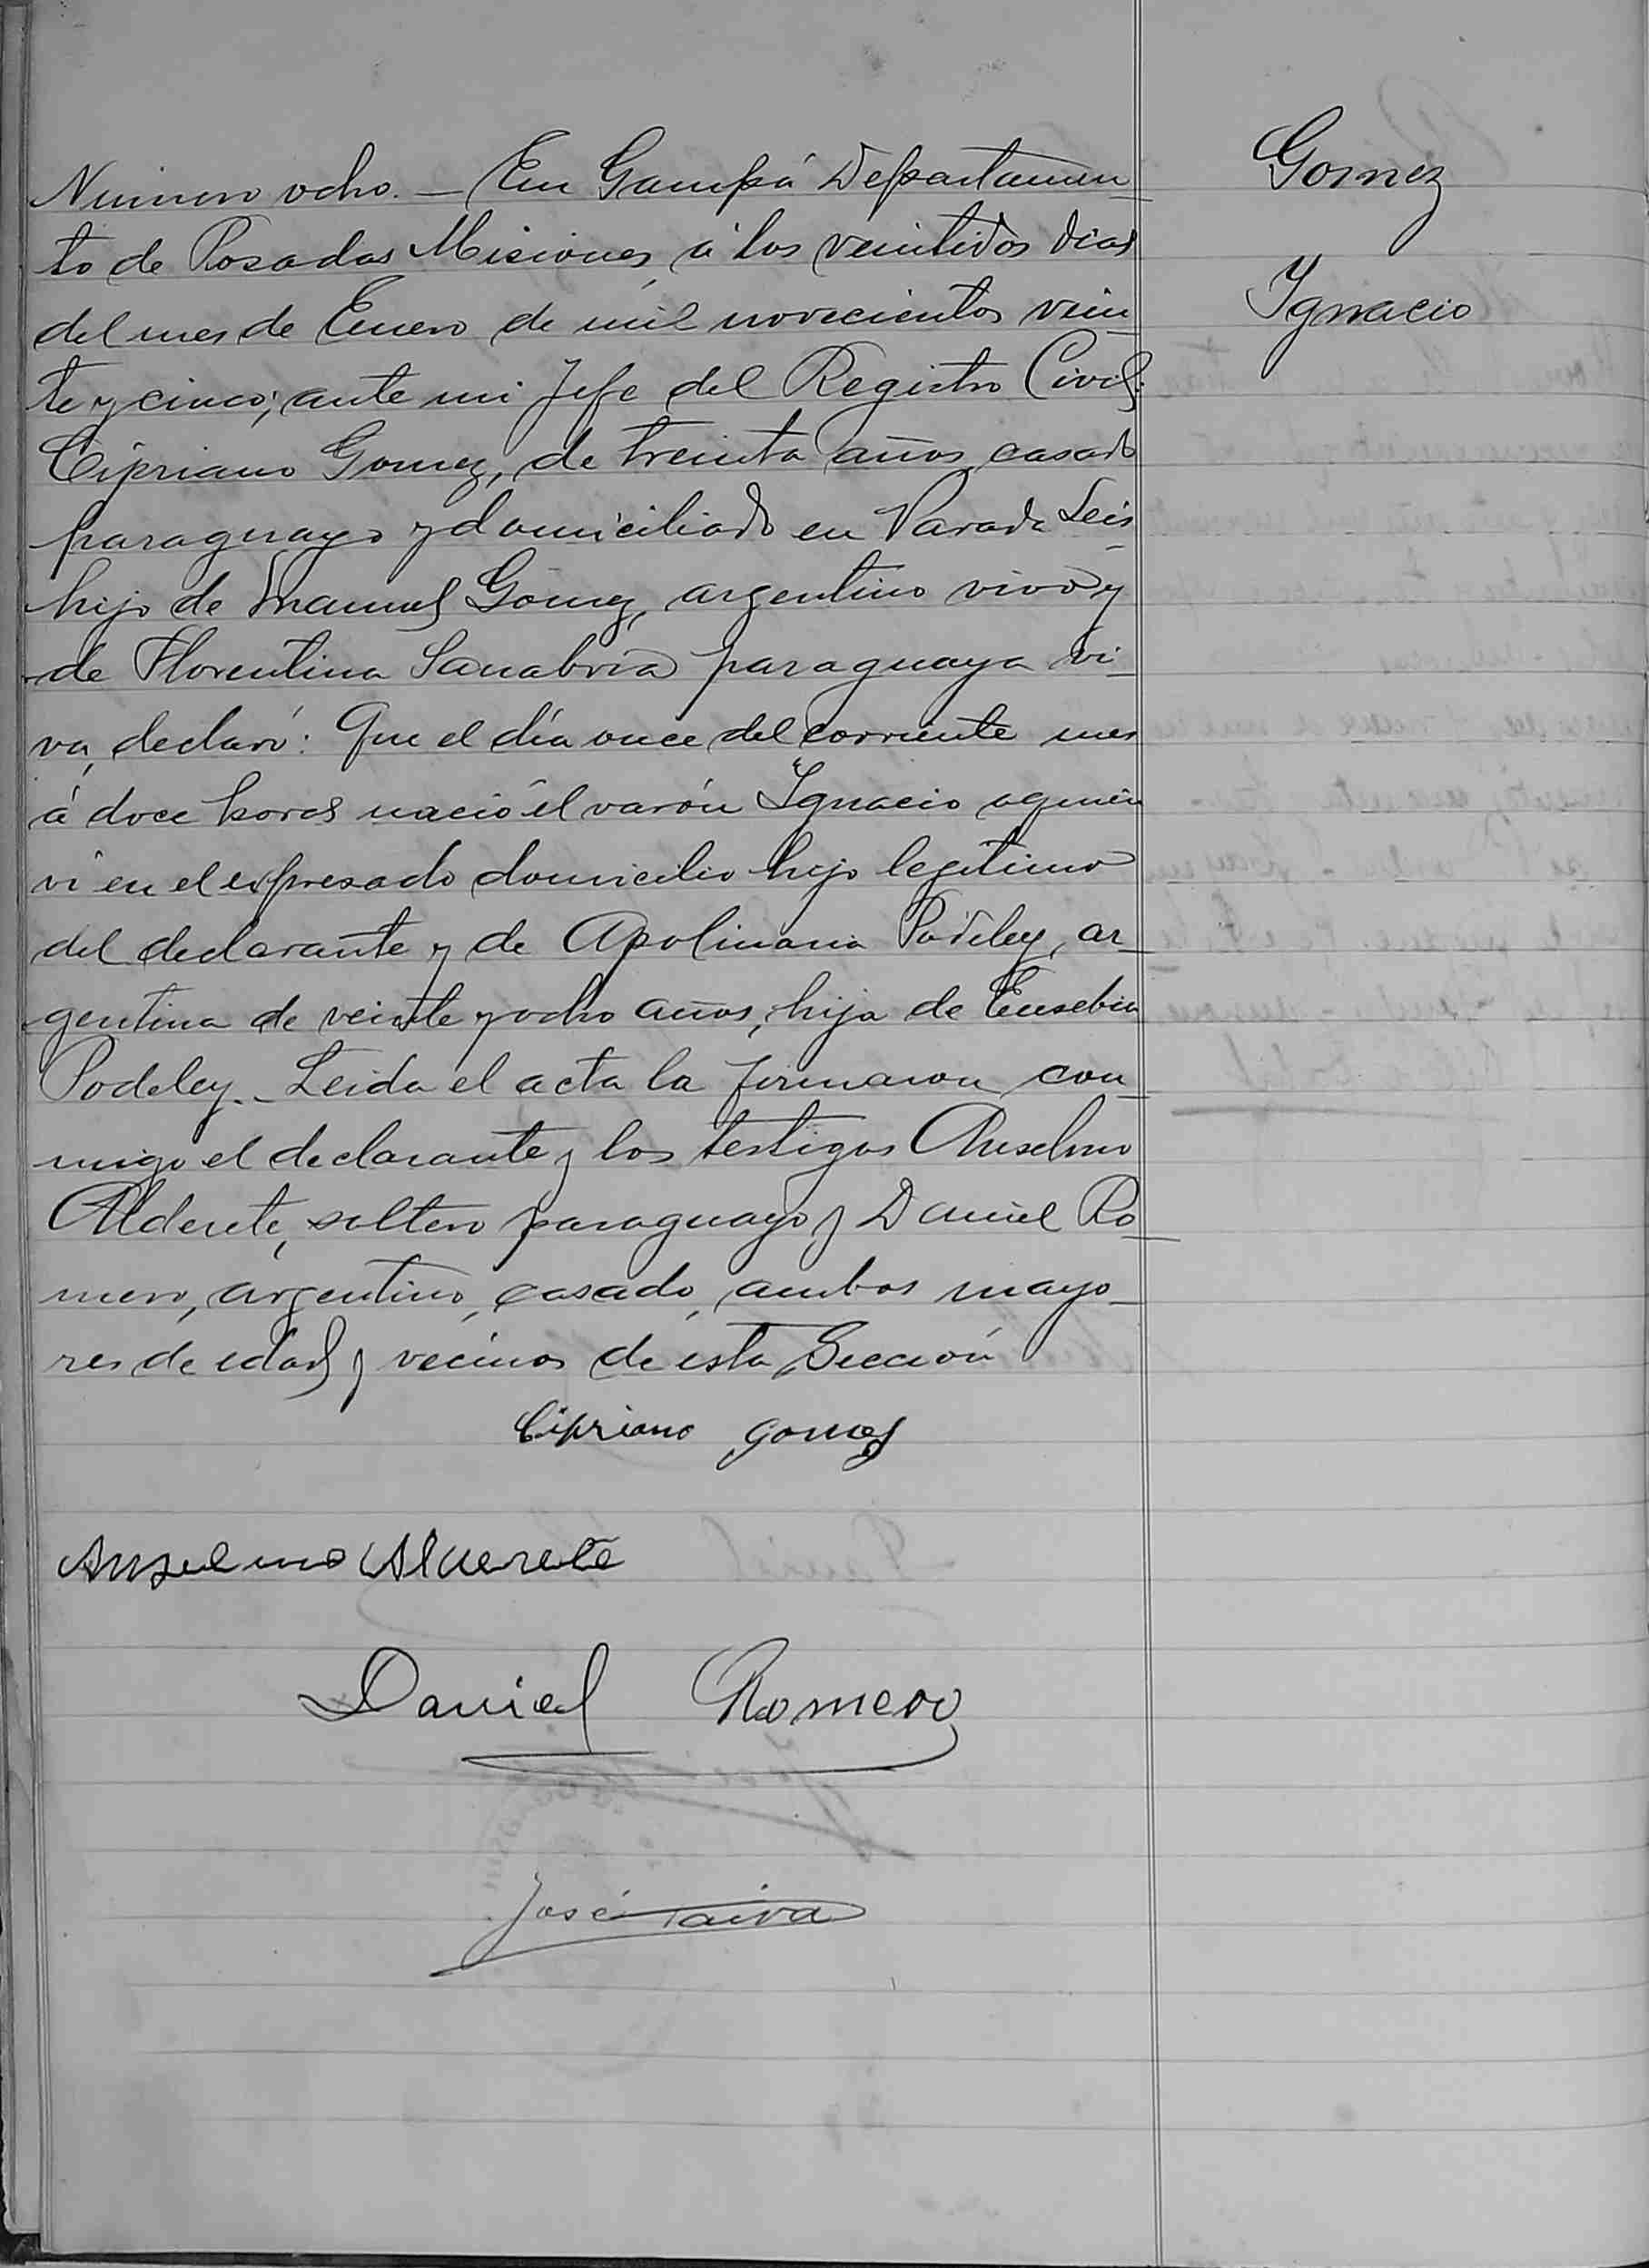 Gomez
Ygnacio
Número ocho. — En Garupá Departamen
to de Posadas Misiones, á los veintidos dias
del mes de Enero de mil novecientos vein
te y cinco; ante mi Jefe del Registro Civil:
Cipriano Gomez, de treinta años, casado
paraguayo y domiciliado en Parada Leis
hijo de Manuel Gomez, argentino vivo y
de Florentina Sanabria paraguaya vi
va, declaró: Que el día once del corriente mes
á doce horas nació el varón Ygnacio a quien
vi en el expresado domicilio hijo legítimo
del declarante y de Apolinaria Podeley, ar
gentina de veinte y ocho años, hija de Eusebia
Podeley. - Leida el acta la firmaron con
migo el declarante y los testigos Anselmo
Alderete, soltero paraguayo y Daniel Ro
mero, argentino, casado, ambos mayo
res de edad y vecinos de esta Sección
Cipriano Gomez
Anselmo Alderete
Daniel Romero
José Paiva